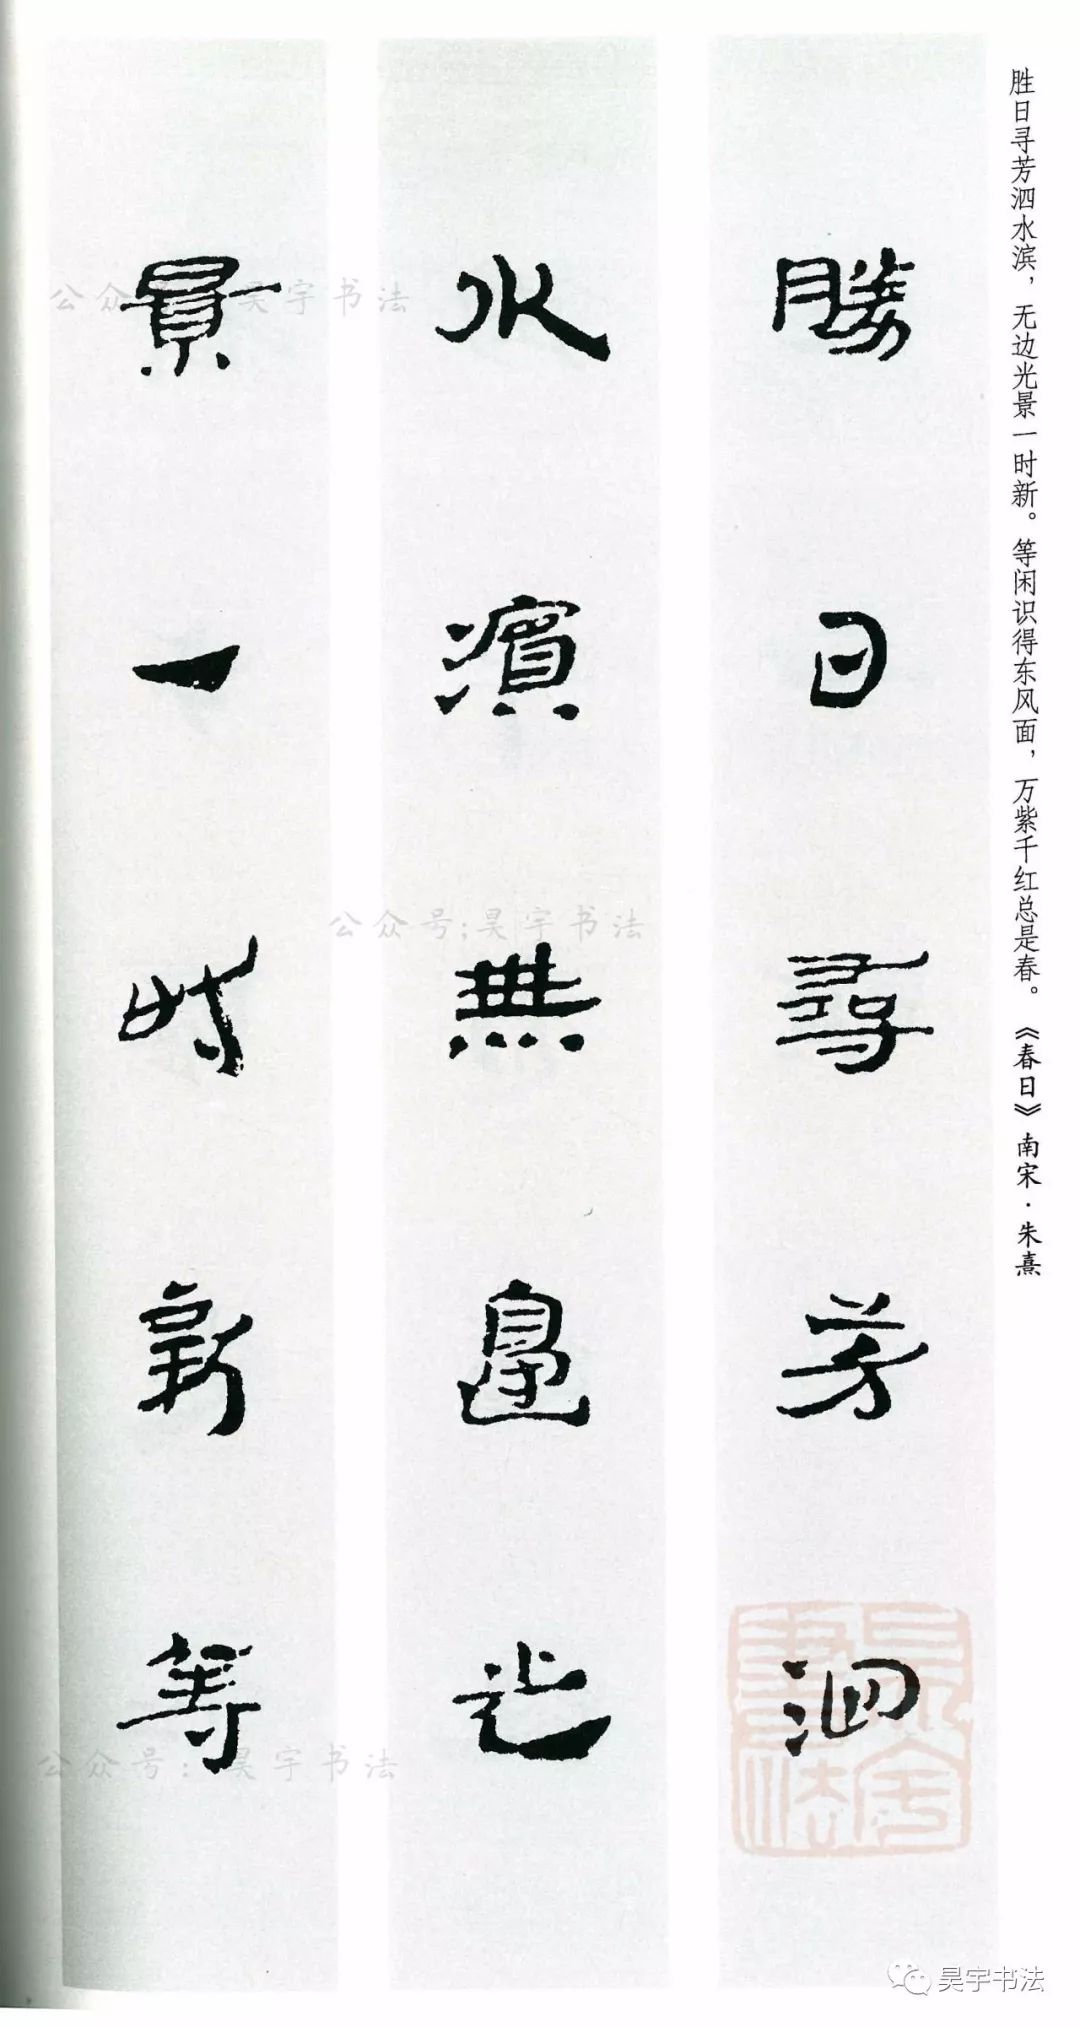 胜日寻芳泗水滨，无边光景一时新。等闲识得东风面，万紫千红总是春。《春日》南宋·朱熹
勝日尋芳泗
水濱無邊光
景一時新等
公众号：昊宇书法
公众号;昊宇书法
公众号：昊宇书法
昊宇書法
昊宇书法